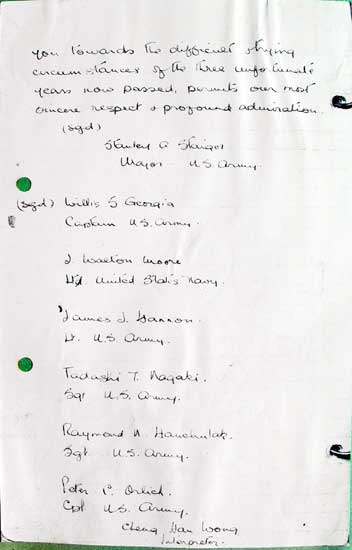 you towards the difficult & trying
circumstances of the three unfortunate
years now passed, permits our most
sincere respect & profound admiration.
(sgd)
Stanley A Staiger
Major - U.S. Army.
(sgd) Willis S Georgia
Captain U.S. Army.
J. Walton Moore
Lt United States Navy.
James J. Hannon.
Lt. U.S. Army.
Tadashi T. Nagaki.
Sgt U.S. Army.
Raymond N. Hanchulak.
Sgt U.S. Army.
Peter C. Orlich.
Cpl U.S. Army.
Cheng Han Wong
Interpreter.